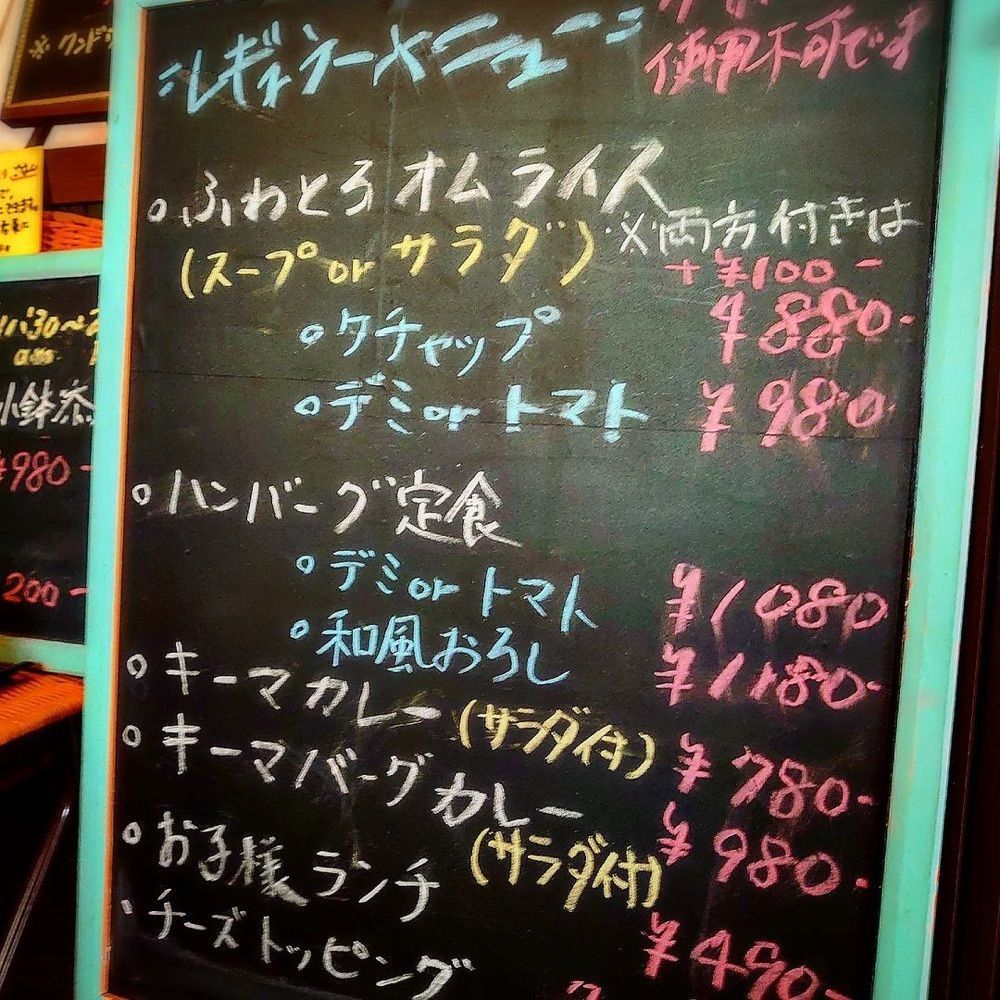 レギュラーメニュー
使用不可です
。ふわとろオムライス
(スープorサラダ) ※両方付きは
+¥100-
。ケチャップ ¥880-
。デミorトマト ¥980-
。ハンバーグ定食
。デミorトマト ¥1080
。和風おろし ¥1180-
。キーマカレー (サラダ付) ¥780-
。キーマバーグカレー (サラダ付) ¥980-
。お子様ランチ ¥490-
。チーズトッピング
小鉢添
¥980-
200-